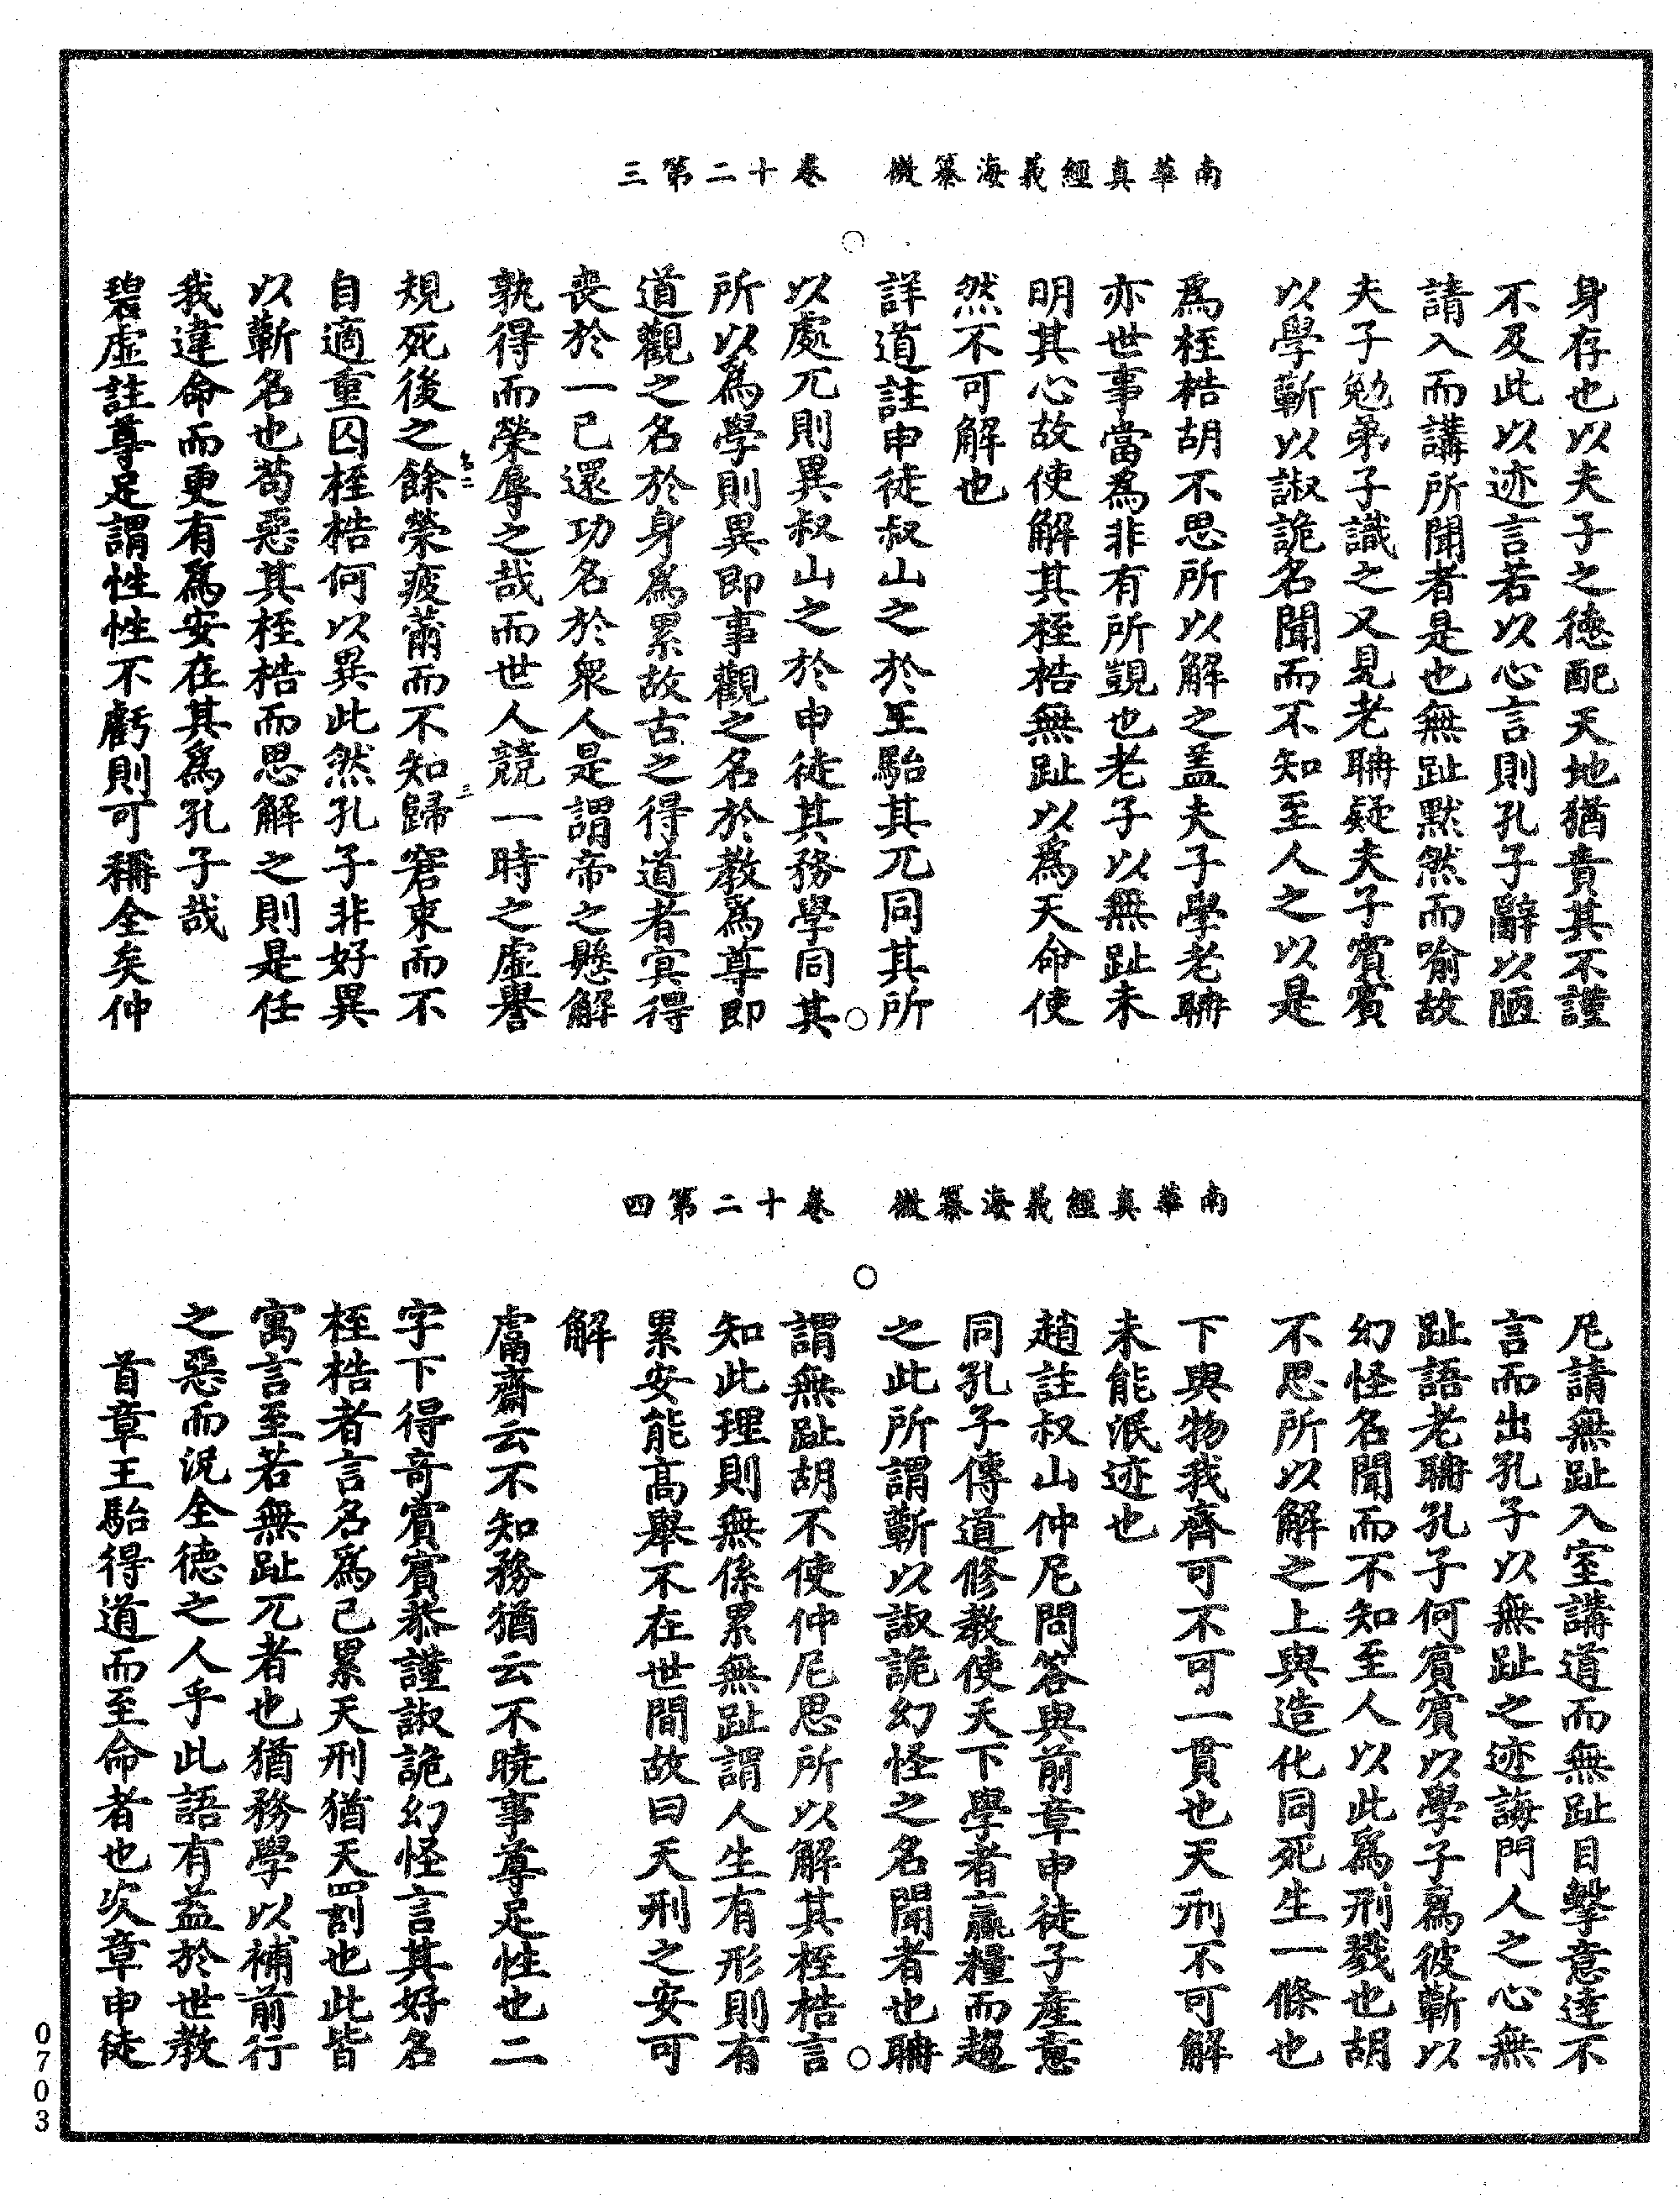 南華真經義海纂微　卷十二第三
身存也以夫子之德配天地猶責其不謹
不及此以迹言若以心言則孔子辭以陋
請入而講所聞者是也無趾默然而喻故
夫子勉弟子識之又見老聃疑夫子賓賓
以學蘄以諔詭名聞而不知至人之以是
為桎梏胡不思所以解之盖夫子學老聃
亦世事當為非有所覬也老子以無趾未
明其心故使解其桎梏無趾以為天命使
然不可解也
詳道註申徒叔山之於王駘其兀同其所
以處兀則異叔山之於申徒其務學同其
所以為學則異即事觀之名於教為尊即
道觀之名於身為累故古之得道者寘得
喪於一已還功名於衆人是謂帝之懸解
孰得而榮辱之哉而世人競一時之虛譽
規死後之餘榮疲薾而不知歸窘束而不
自適重囚桎梏何以異此然孔子非好異
以蘄名也苟惡其桎梏而思解之則是任
我違命而更有為安在其為孔子哉
碧虛註尊足謂性性不虧則可稱全矣仲
南華真經義海纂微　卷十二第四
尼請無趾入室講道而無趾目擊意達不
言而出孔子以無趾之迹誨門人之心無
趾語老聃孔子何賓賓以學子為彼蘄以
幻怪名聞而不知至人以此為刑戮也胡
不思所以解之上與造化同死生一條也
下與物我齊可不可一貫也天刑不可解
未能泯迹也
趙註叔山仲尼問答與前章申徒子產意
同孔子傳道修教使天下學者贏糧而趨
之此所謂蘄以諔詭幻怪之名聞者也聃
謂無趾胡不使仲尼思所以解其桎梏言
知此理則無係累無趾謂人生有形則有
累安能高舉不在世間故曰天刑之安可
解
鬳齋云不知務猶云不曉事尊足性也二
字下得奇賓賓恭謹諔詭幻怪言其好名
桎梏者言名為己累天刑猶天罰也此皆
寓言至若無趾兀者也猶務學以補前行
之惡而況全德之人乎此語有益於世教
首章王駘得道而至命者也次章申徒
0703